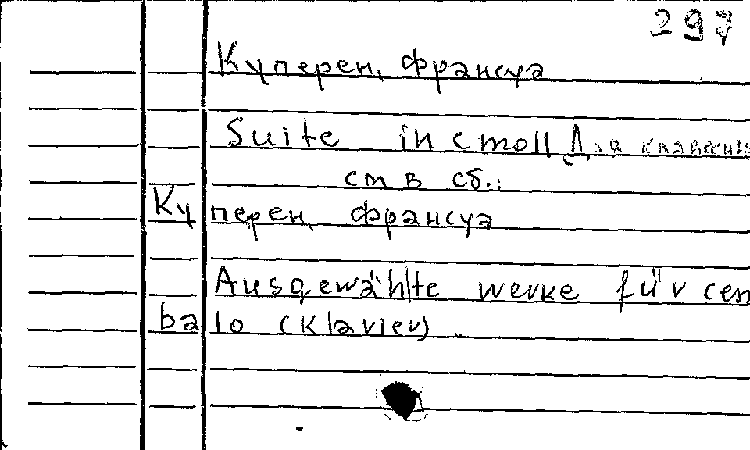 297
Куперен, Франсуа
Suite in c moll Для клавесина
см в сб.:
Куперен, Франсуа
Ausgewählte Werke für cem
balo (Klavier).